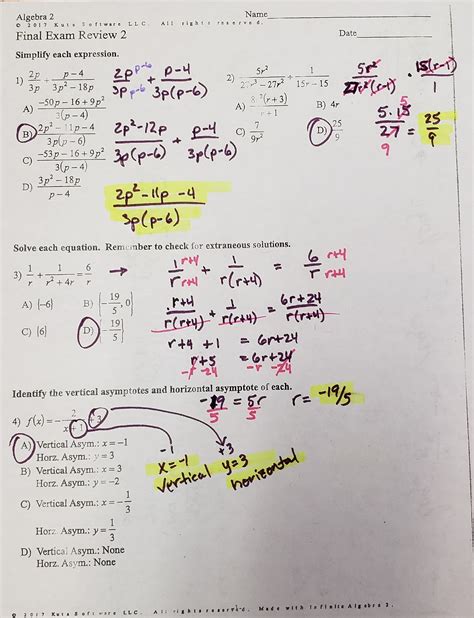 Algebra 2
© 2017 Kuta Software LLC. All rights reserved.
Name
Final Exam Review 2
Date
Simplify each expression.
1) 2p/3p + (p − 4)/(3p² − 18p)
2p p-6/3p p-6 + p-4/3p(p-6)
A) (−50p − 16 + 9p²)/(3(p − 4))
B) (2p² − 11p − 4)/(3p(p − 6))
2p²-12p/3p(p-6) + p-4/3p(p-6)
C) (−53p − 16 + 9p²)/(3(p − 4))
D) (3p² − 18p)/(p − 4)
2p²-11p-4/3p(p-6)
2) 5r²/(27r² − 27r) ÷ 1/(15r − 15)
5r²/27r²(r-1) · 15(r-1)/1
B) 4r
C) 7/9r²
D) 25/9
5·15 5/27 9 = 25/9
Solve each equation. Remember to check for extraneous solutions.
3) 1/r + 1/(r² + 4r) = 6/r
→ 1 r+4/r r+4 + 1/r(r+4) = 6 r+4/r r+4
A) {−6}
B) {−19/5, 0}
C) {6}
D) {−19/5}
r+4/r(r+4) + 1/r(r+4) = 6r+24/r(r+4)
r+4 +1 = 6r+24
r+5 = 6r+24
-r -24 -r -24
-19/5 = 5r/5 r= -19/5
Identify the vertical asymptotes and horizontal asymptote of each.
4) f(x) = −2/(x + 1) + 3
A) Vertical Asym.: x = −1
Horz. Asym.: y = 3
B) Vertical Asym.: x = 3
Horz. Asym.: y = −2
C) Vertical Asym.: x = −1/3
Horz. Asym.: y = 1/3
D) Vertical Asym.: None
Horz. Asym.: None
-1 +3
x=-1 y=3
vertical horizontal
© 2017 Kuta Software LLC. All rights reserved. Made with Infinite Algebra 2.